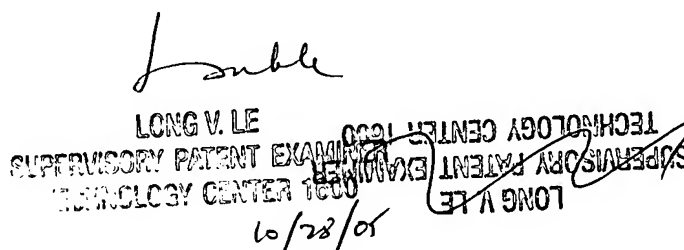 LONG V. LE
SUPERVISORY PATENT EXAMINER
TECHNOLOGY CENTER 1600
10/28/05
LONG V. LE
SUPERVISORY PATENT EXAMINER
TECHNOLOGY CENTER 1600